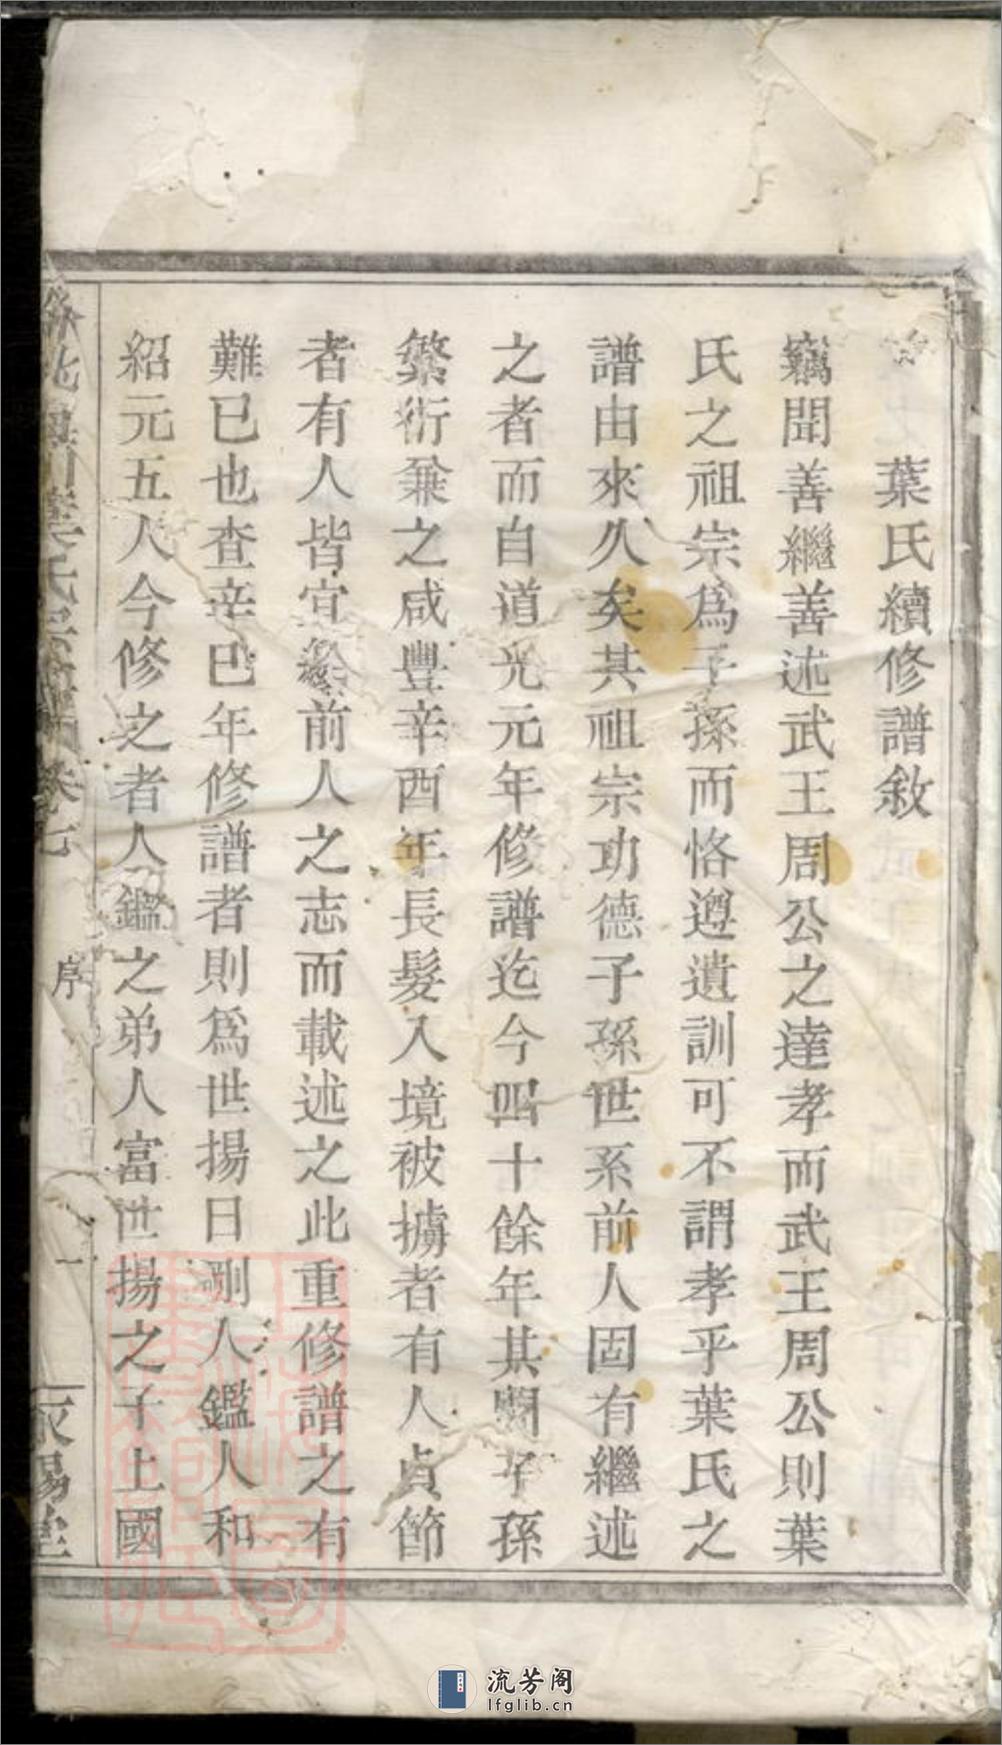 葉氏續修譜敘
竊聞善繼善述武王周公之達孝而武王周公則葉
氏之祖宗爲子孫而恪遵遺訓可不謂孝乎葉氏之
譜由來久矣其祖宗功德子孫世系前人固有繼述
之者而自道光元年修譜迄今四十餘年其間子孫
繁衍兼之咸豐辛酉年長髮入境被擄者有人貞節
者有人皆宜繼前人之志而載述之此重修譜之有
難已也查辛巳年修譜者則爲世揚日剛人鑑人和
紹元五人今修之者人鑑之弟人富世揚之子上國
葉氏宗譜 卷七
序
一
流芳阁
lfglib.cn